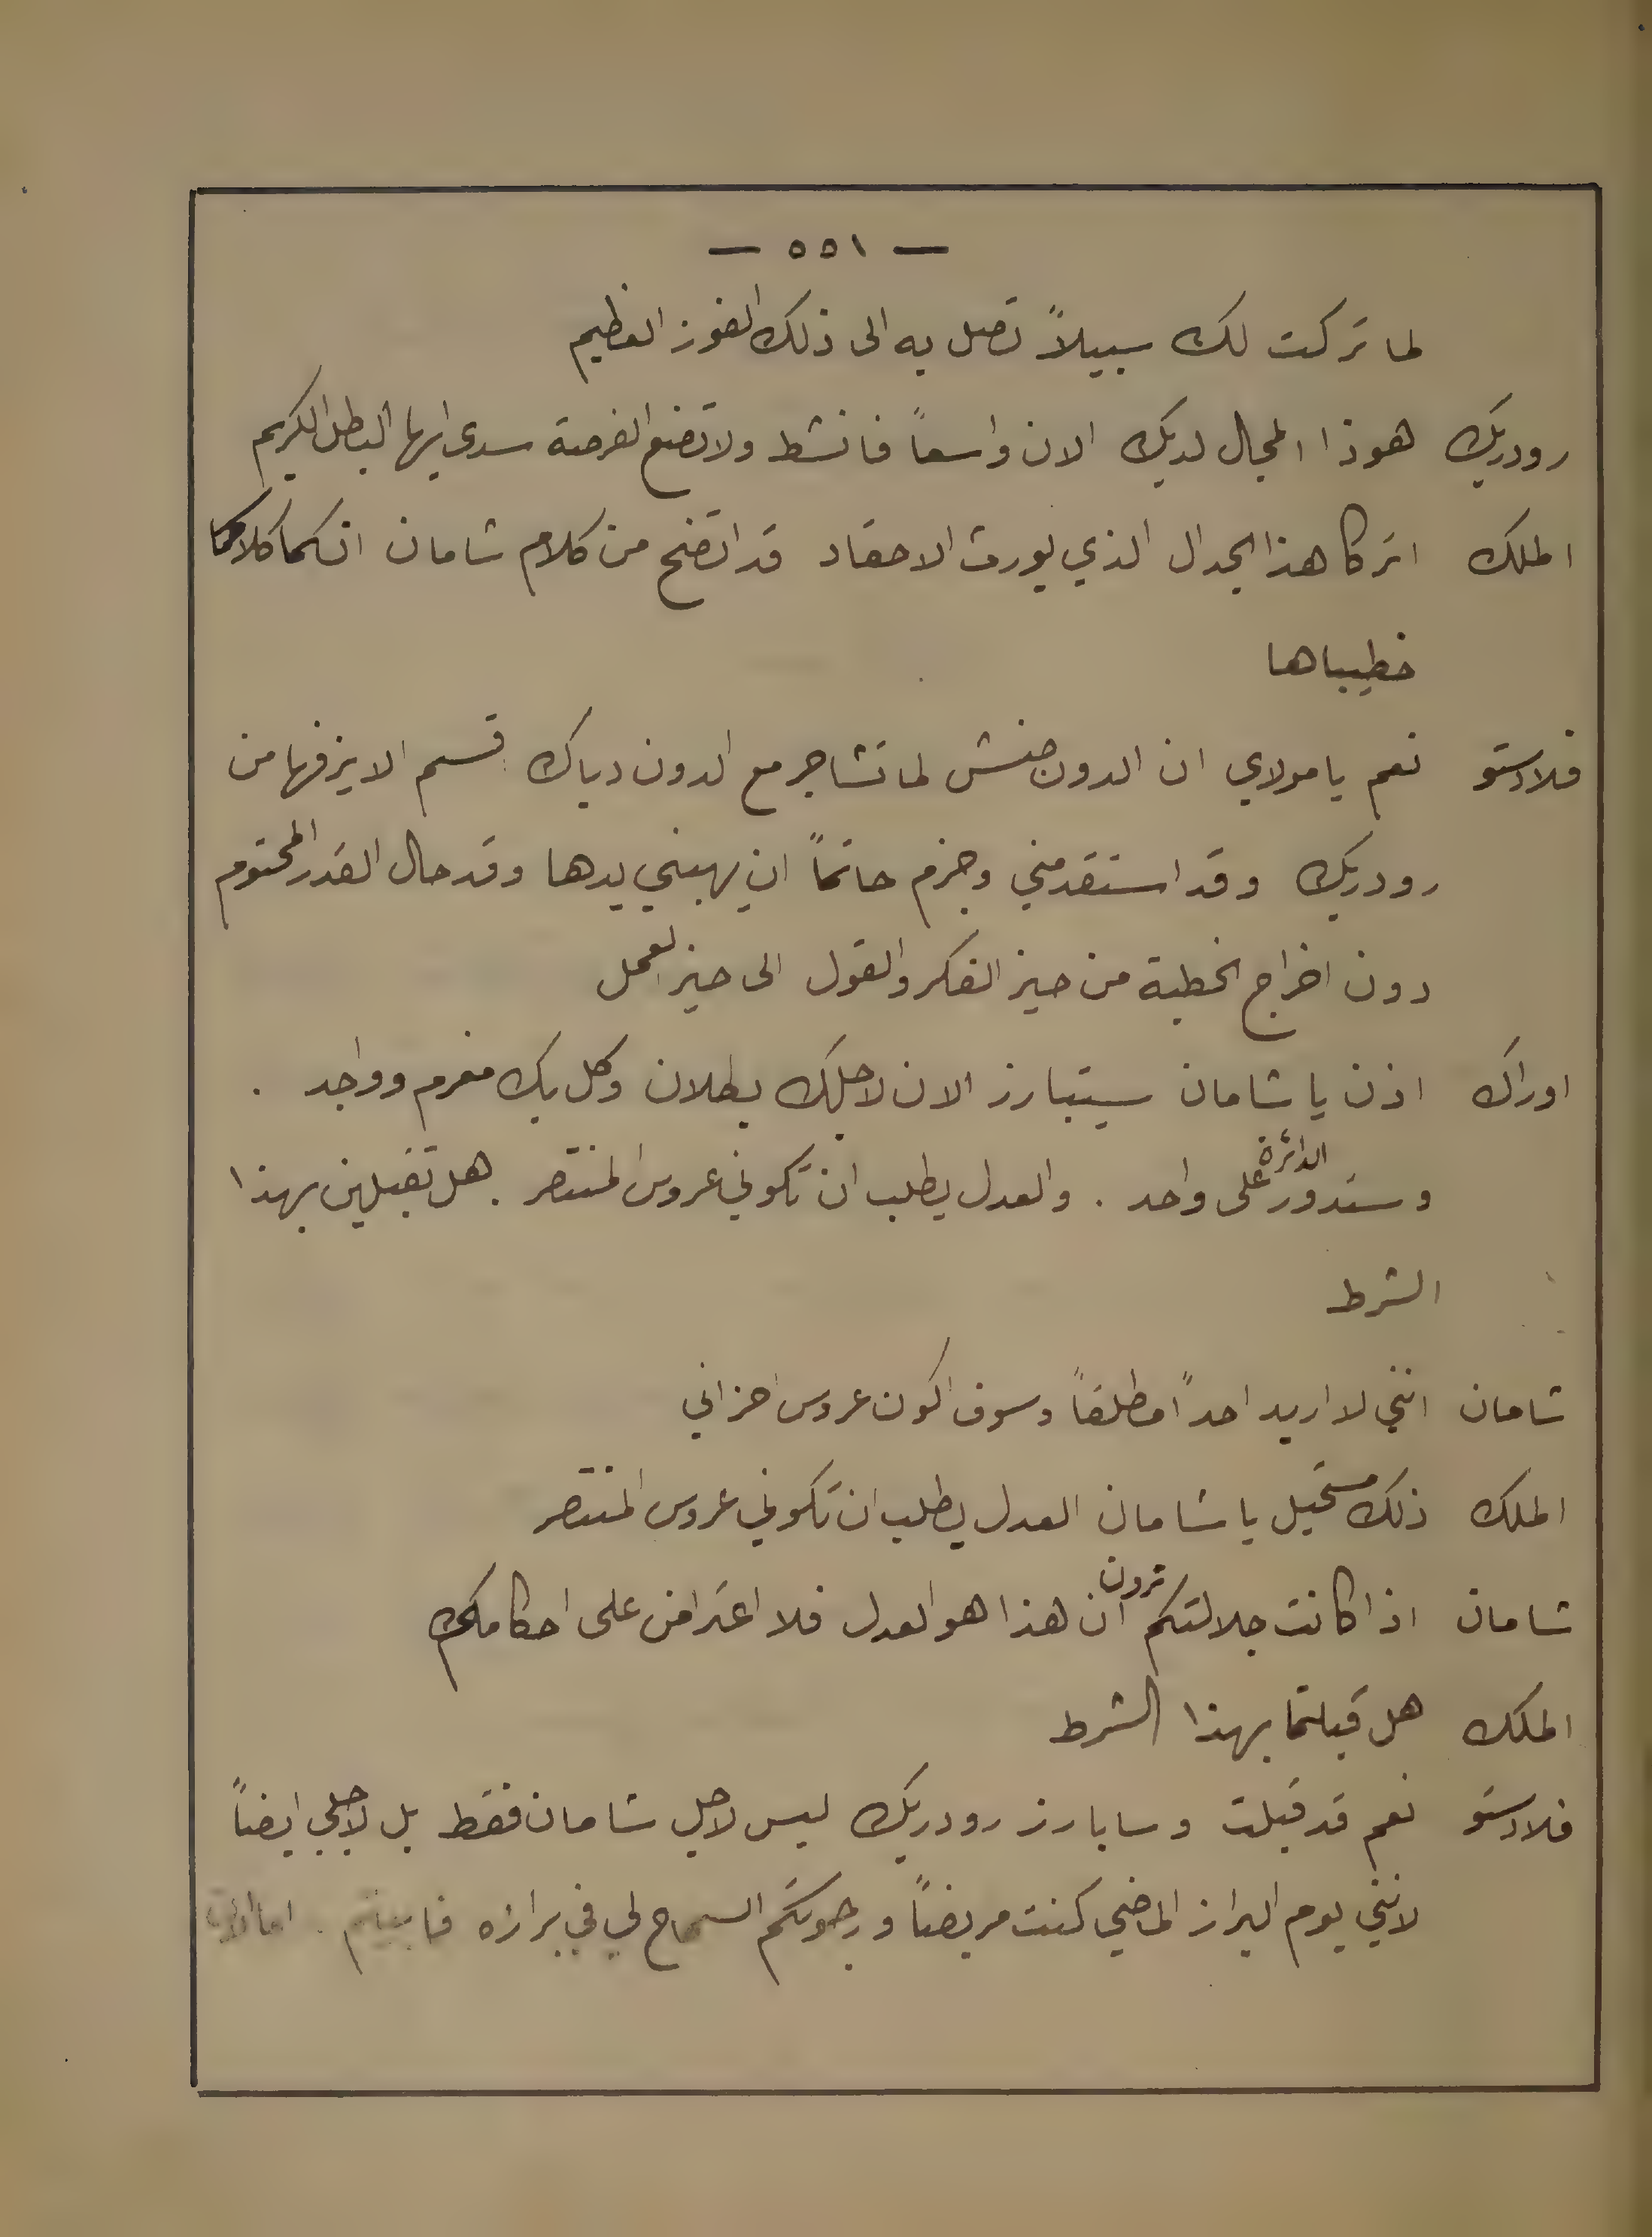 — ٥٥١ —
لما تركت لك سبيلاً تصل به الى ذلك الفوز العظيم
رودريك هوذا المجال لديك الان واسعاً فانشط ولا تضع الفرصة سدى ايها البطل الكريم
الملك اتركا هذا الجدال الذي يورث الاحقاد قد اتضح من كلام شامان انكما كلاكما
خطيباها
فلادستو نعم يا مولاي ان الدون صنش لما تشاجر مع الدون دياك قسم الا يزفها من
رودريك وقد استقدمني وجزم حاتماً ان يهبني يدها وقد حال القدر المحتوم
دون اخراج الخطبة من حيز الفكر والقول الى حيز العمل
اوراك اذن يا شامان سيتبارز الان لاجلك بطلان وكل بك مغرم وواجد .
وستدور الدائرة على واحد . والعدل يطلب ان تكوني عروس المنتصر . هل تقبلين بهذا
الشرط
شامان انني لا اريد احداً مطلقاً وسوف اكون عروس احزاني
الملك ذلك مستحيل يا شامان العدل يطلب ان تكوني عروس المنتصر
شامان اذا كانت جلالتكم ترون ان هذا هو العدل فلا اعتراض على احكامك
الملك هل قبلتما بهذا الشرط
فلادستو نعم قد قبلت وسابارز رودريك ليس لاجل شامان فقط بل لاجلي ايضاً
لانني يوم البراز الماضي كنت مريضاً ورجوتكم السماح لي في برازه فابيتم . اما